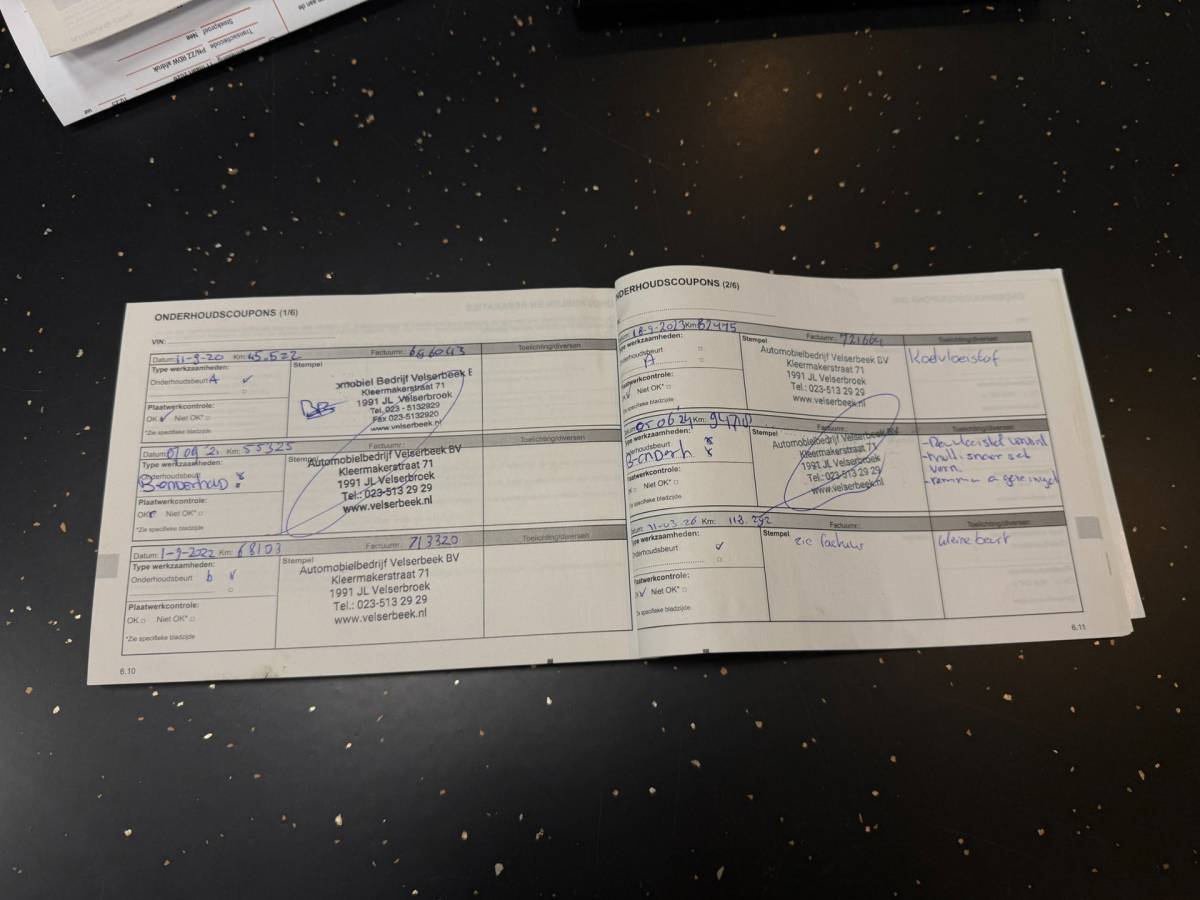 Steekproef Nee
Transactiecode PN/ZZ RDW afdruk
ONDERHOUDSCOUPONS (1/6)
VIN:
Datum: 11-9-20 Km: 45.522 Factuurnr.: 696043 Toelichting/diversen
Type werkzaamheden:
Onderhoudsbeurt A
Plaatwerkcontrole:
OK Niet OK*
*Zie specifieke bladzijde
Stempel
omobiel Bedrijf Velserbeek
Kleermakerstraat 71
1991 JL Velserbroek
Tel. 023 - 5132929
Fax 023-5132920
www.velserbeek.nl
Datum: 01 09 21 Km: 55325 Factuurnr.: Toelichting/diversen
Type werkzaamheden:
Onderhoudsbeurt
B-onderhoud
Plaatwerkcontrole:
OK Niet OK*
*Zie specifieke bladzijde
Stempel
Automobielbedrijf Velserbeek BV
Kleermakerstraat 71
1991 JL Velserbroek
Tel.: 023-513 29 29
www.velserbeek.nl
Datum: 1-9-2022 Km: 68103 Factuurnr.: 713320 Toelichting/diversen
Type werkzaamheden:
Onderhoudsbeurt b
Plaatwerkcontrole:
OK Niet OK*
*Zie specifieke bladzijde
Stempel
Automobielbedrijf Velserbeek BV
Kleermakerstraat 71
1991 JL Velserbroek
Tel.: 023-513 29 29
www.velserbeek.nl
6.10
ONDERHOUDSCOUPONS (2/6)
Datum: 18-9-2023 Km: 82475 Factuurnr.: 721664 Toelichting/diversen
Type werkzaamheden:
Onderhoudsbeurt
A
Plaatwerkcontrole:
OK Niet OK*
*Zie specifieke bladzijde
Automobielbedrijf Velserbeek BV
Kleermakerstraat 71
1991 JL Velserbroek
Tel.: 023-513 29 29
www.velserbeek.nl
Koelvloeistof
Datum: 05 06 '24 Km: Factuurnr.: Toelichting/diversen
Type werkzaamheden:
Onderhoudsbeurt
B-onderh.
Plaatwerkcontrole:
Niet OK*
*Zie specifieke bladzijde
Stempel
Automobielbedrijf Velserbeek BV
Kleermakerstraat 71
1991 JL Velserbroek
Tel.: 023-513 29 29
www.velserbeek.nl
- Remvloeistof
- multisnaar set
- remmen gereinigd
Datum: 11-03-26 Km: 118.292 Factuurnr.: Toelichting/diversen
Type werkzaamheden:
Onderhoudsbeurt
Plaatwerkcontrole:
OK Niet OK*
*Zie specifieke bladzijde
Stempel zie factuur
kleine beurt
6.11